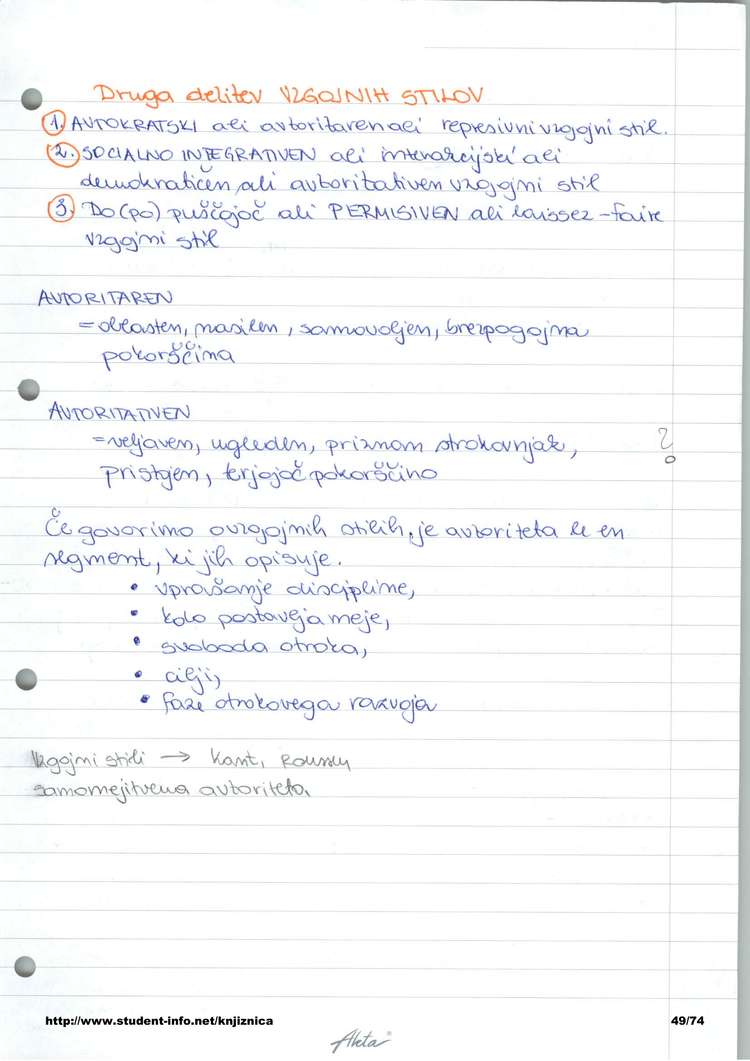 Druga delitev VZGOJNIH STILOV
1. AVTOKRATSKI ali avtoritaren ali represivni vzgojni stil.
2. SOCIALNO INTEGRATIVEN ali interakcijski ali
demokratičen, ali avtoritativen vzgojni stil
3. Do (po) puščajoč ali PERMISIVEN ali laissez-faire
vzgojni stil
AVTORITAREN
= oblasten, nasilen, samovoljen, brezpogojna
pokorščina
AVTORITATIVEN
= veljaven, ugleden, priznan strokovnjak, ?
pristojen, terjajoč pokorščino
Če govorimo o vzgojnih stilih, je avtoriteta le en
segment, ki jih opisuje.
• vprašanje discipline,
• kdo postavlja meje,
• svoboda otroka,
• cilji,
• faze otrokovega razvoja
Vzgojni stili → Kant,
samomejitvena avtoriteta
http://www.student-info.net/knjiznica 49/74
Aheta